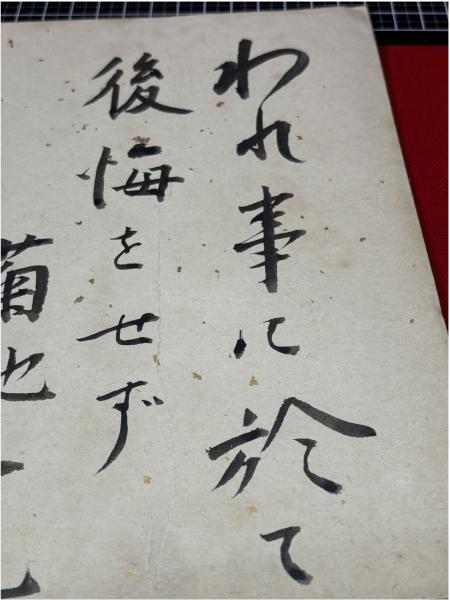 われ事に於て
後悔をせず